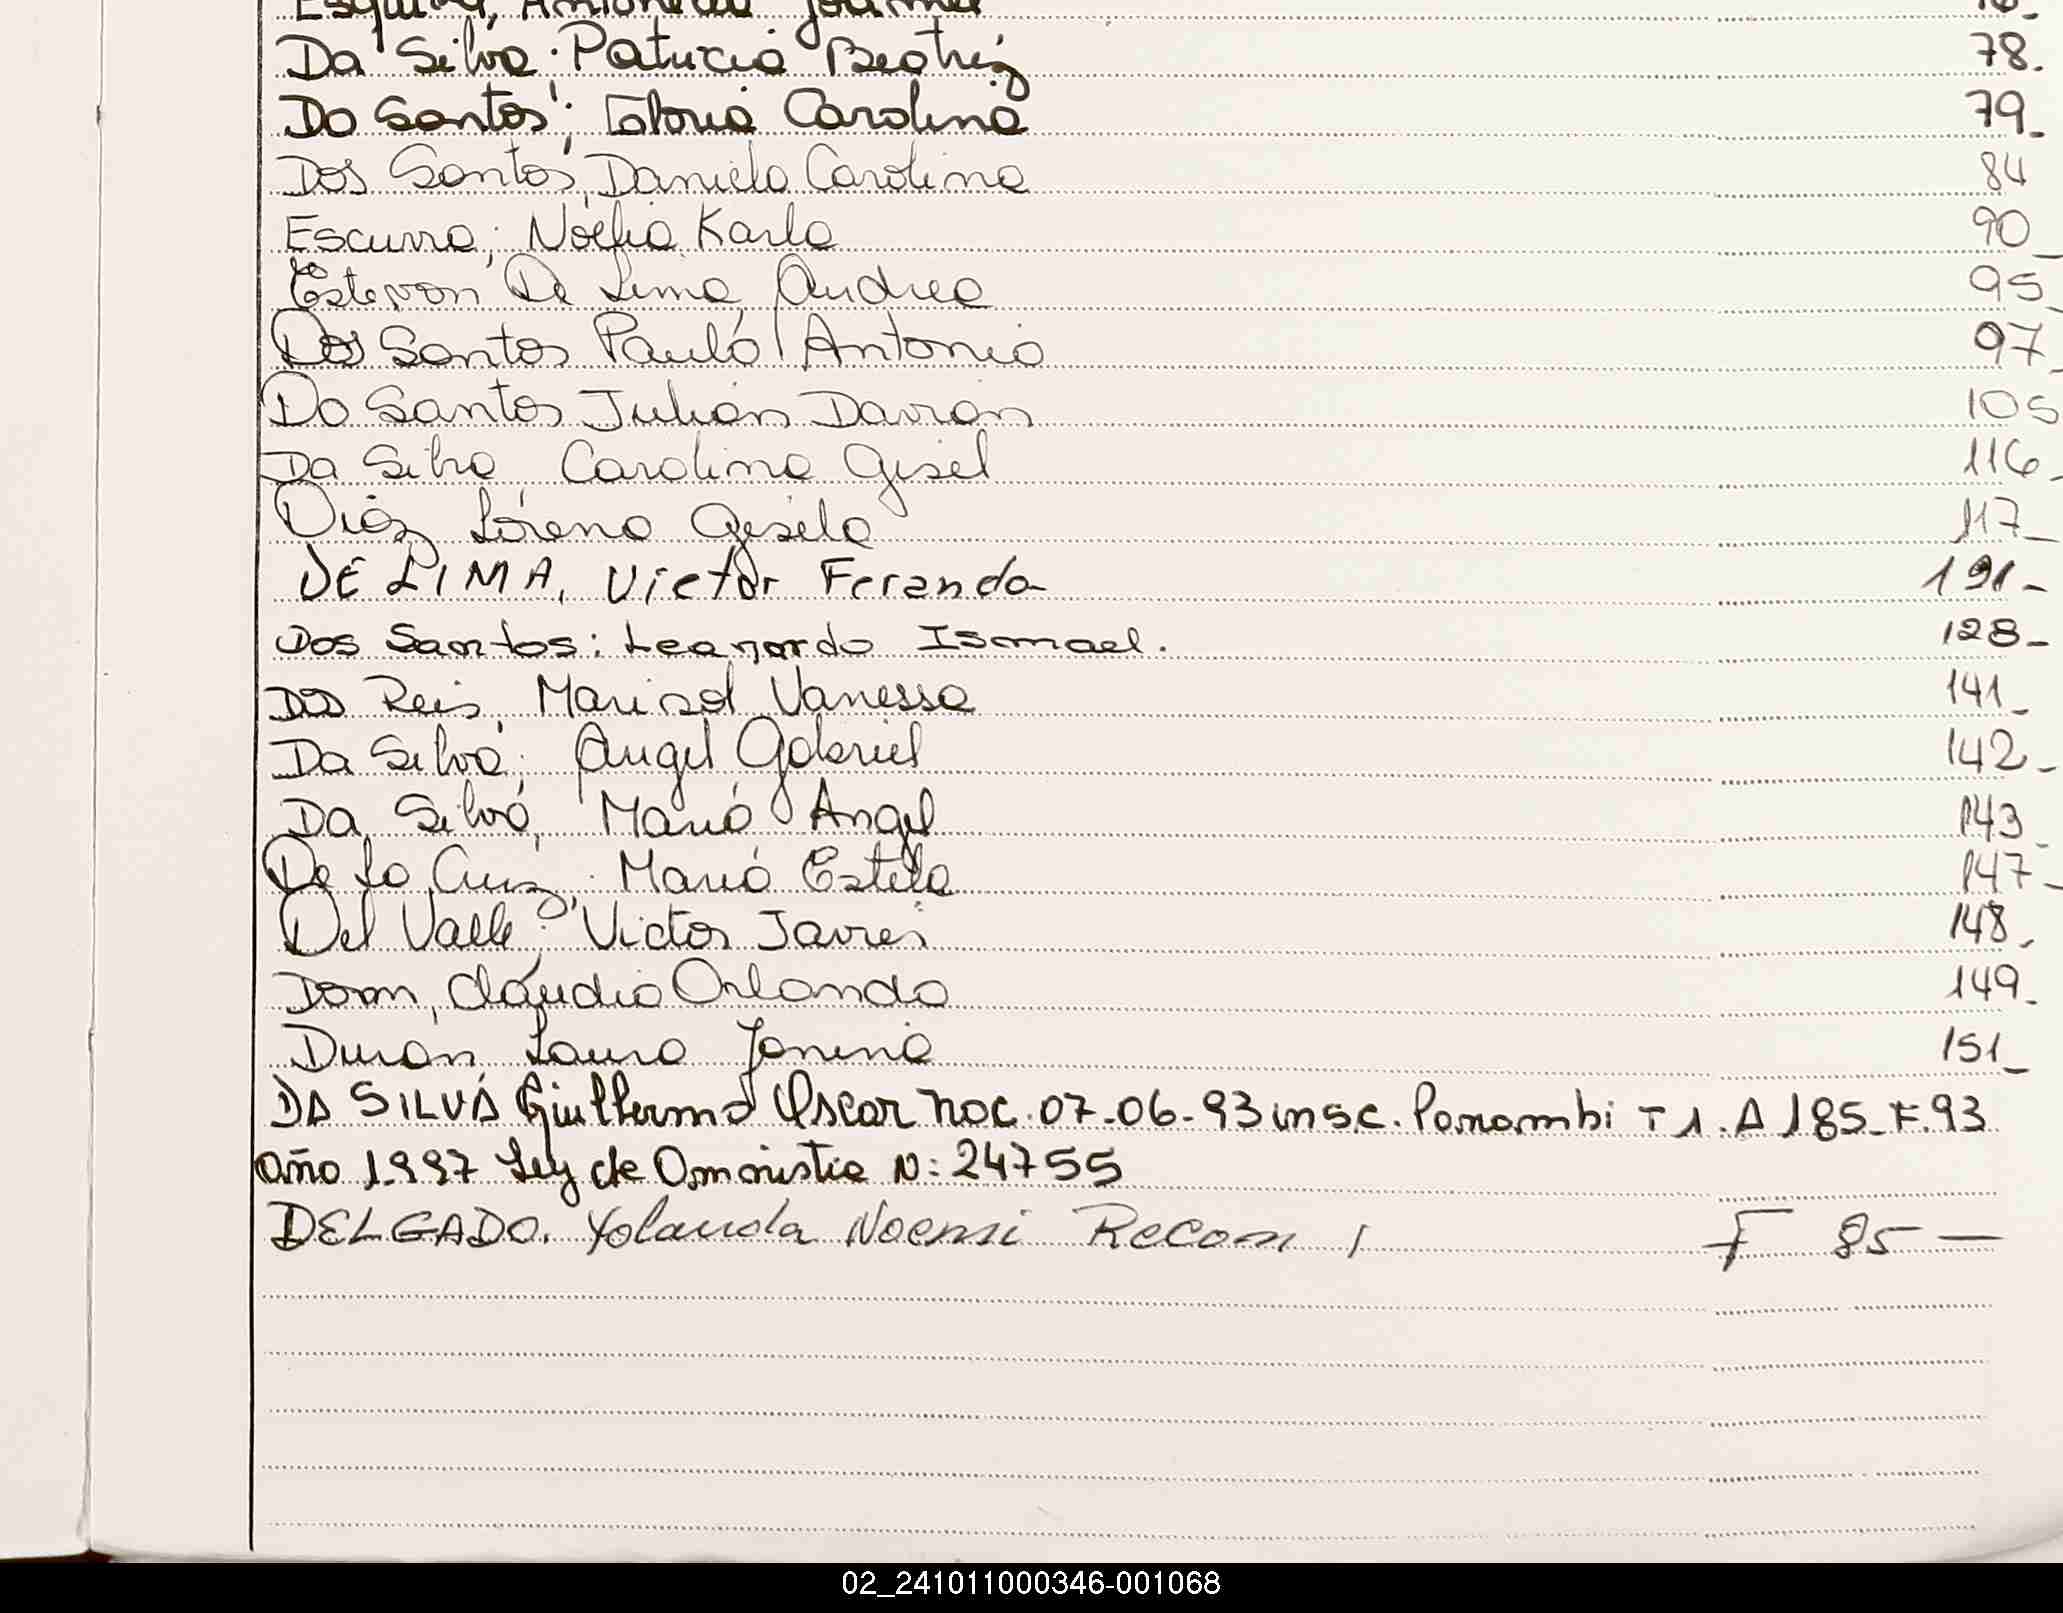 Da Silva. Patricia Beatriz 78.
Do Santos; Gloria Carolina 79_
Dos Santos, Daniela Carolina 84
Escurra; Noelia Karla 90_
Estevon De Lima, Andrea 95_
Dos Santos Paulo Antonio 97_
Do Santos Julián Darian 105
Da Silva Carolina Gisel 116_
Diáz Lorena Gisela 117_
DE LIMA, Victor Feranda 191-
Dos Santos: Leanardo Ismael. 128-
Dos Reis, Marisol Vanessa 141_
Da Silva; Angel Gabriel 142_
Da Silva, Mario Angel 143_
De La Cruz; Maria Estela 147_
Del Valle. Victor Javier 148.
Dorn, Claudio Orlando 149_
Durán Laura Janina 151_
DA SILVA Guillermo Oscar noc. 07-06-93 insc. Panambi T 1. A 185_F.93
año 1997 Ley de Omnistia N: 24755
DELGADO. Yolanda Noemi Recon 1 F 85 —
02_241011000346-001068